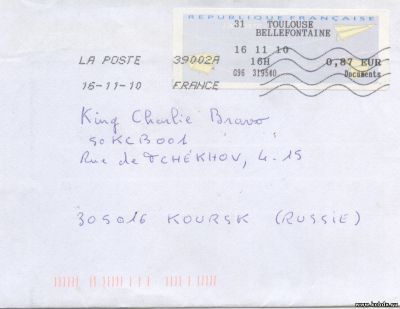 REPUBLIQUE FRANÇAISE
31 TOULOUSE
BELLEFONTAINE
16 11 10
16H 0,87 EUR
096 319540 Documents
LA POSTE 39002A
16-11-10 FRANCE
King Charlie Bravo
90KCB001
Rue de TCHÉKHOV, 4-19
305016 KOURSK (RUSSIE)